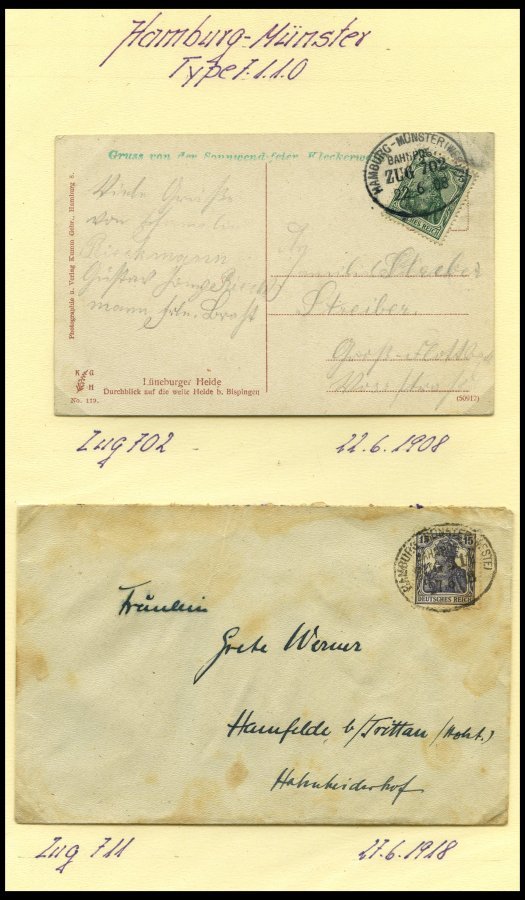 Hamburg-Münster
Type 7.1.1.0
Gruss von der Sonnwend-feier,
HAMBURG-MÜNSTER (WESTF)
BAHNPOST
ZUG 702
22 6 08
DEUTSCHES REICH
Viele Grüße
von
Rieckmann
Gustav
mann
Streiber
Vily
Streiber.
Groß-Flottbek
Photographie u. Verlag Kunom Gebr., Hamburg 8.
K G
H
No. 119.
Lüneburger Heide
Durchblick auf die weite Heide b. Bispingen
(50917)
Zug 702
22.6.1908
HAMBURG-MÜNSTER (WESTF)
15 15
DEUTSCHES REICH
Fräulein
Grete Werner
Hamfelde b/Trittau (Holst.)
Hahnheiderhof
Zug 711
27.6.1918